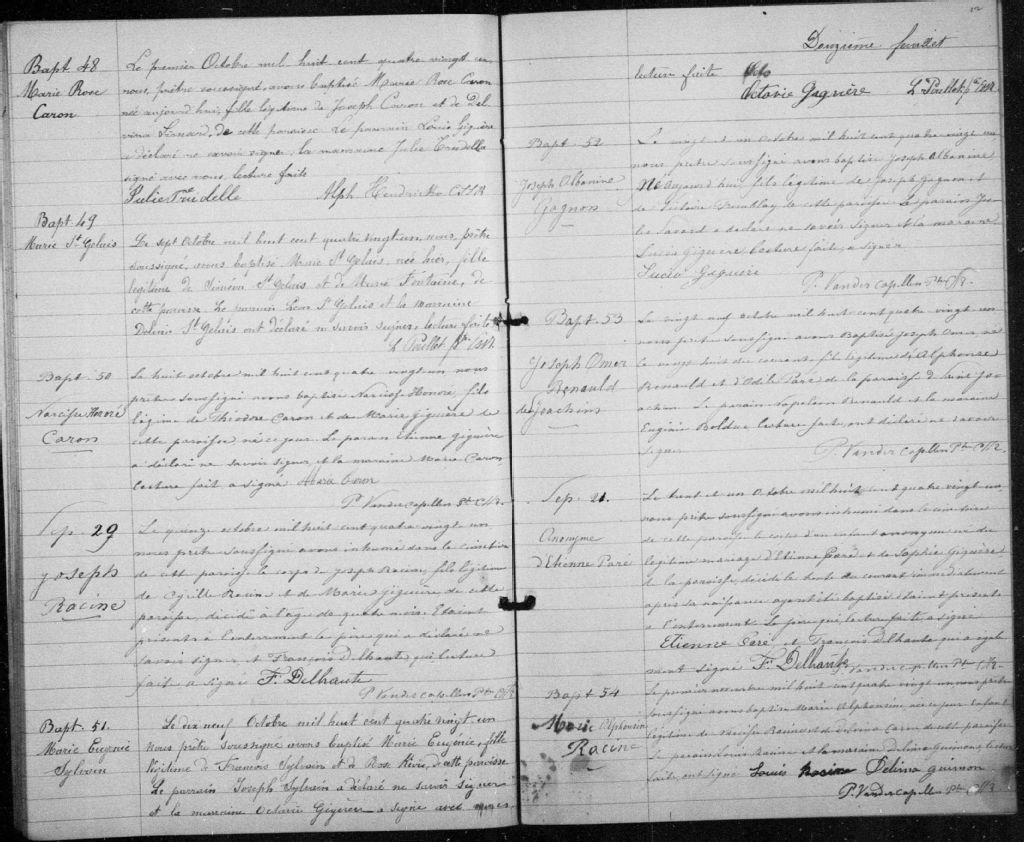 Bapt 48
Marie Rose
Caron
Le premier Octobre mil huit cent quatre vingt un
nous, prêtre soussigné, avons baptisé Marie Rose Caron
née aujourd'hui, fille légitime de Joseph Caron et de Del
vina Simard, de cette paroisse Le parrain Louis Giguère
a déclaré ne savoir signer, la marraine Julie Trudelle
signé avec nous, lecture faite
Julie Trudelle Alph Hendrickx
Bapt 49
Marie St Gelais
Le sept Octobre mil huit cent quatre vingt un, nous, prêtre
soussigné, avons baptisé Marie St Gelais, née hier, fille
légitime de Siméon St Gelais et de Marie Fontaine, de
cette paroisse Le parrain Léon St Gelais et la marraine
St Gelais ont déclaré ne savoir signer, lecture faite
Bapt. 50
Narcisse Honoré
Caron
Le huit octobre mil huit cent quatre vingt un nous
prêtre soussigné avons baptisé Narcisse Honoré, fils
légime de Théodre Caron et de Marie giguère de
cette paroisse né ce jour. Le parain Etienne giguère
a déclaré ne savoir signer, et la maraine Marie Caron
Lecture fait a signé
P. Vandercapellen Ptr
Sep. 29
Joseph
Racine
Le quinze octobre mil huit cent quatre vingt un,
nous prêtre soussigné avons inhumé dans le cimetière
de cette paroisse le corps de Joseph Racine, fils légitime
de Cyrille Racine et de Marie giguère de cette
paroisse, décédé à l'age de quatre mois. Etaient
présents à l'enterrement le père qui a déclaré ne
savoir signer et François Delhaute qui lecture
fait a signé F. Delhaute
P. Vandercapellen Ptr
Bapt. 51.
Marie Eugénie
Sylvain
Le dix neuf Octobre mil huit cent quatre vingt un
Nous prêtre soussigné avons baptisé Marie Eugénie, fille
légitime de Francois Sylvain et de Rose de cette paroisse
Le parrain Joseph Sylvain a déclaré ne savoir signer
et la marraine Octavie Giguère a signé avec nous
Deuzième feuillet
lecture faite
Octavie Gaguière
Bapt 52
Joseph Albanine
Gagnon
Le vingt et un Octobre mil huit cent quatre vingt un
nous prêtre soussigné avons baptisé Joseph Albanine
Né aujourd hui, fils légitime de Joseph Gagnon et
de Tremblay de cette paroisse. Le parain
Savard a déclaré ne savoir signer et la maraine
Giguère lecture faite, a signer
P. Vandercapellen Ptr
Bapt. 53
Joseph Omer
Renauld
de St Joachim
Le vingt neuf octobre mil huit cent quatre vingt un
nous prêtre soussigné avons Baptisé Joseph Omer né
le vingt huit du courant, fils légitime de Alphonse
Renauld et d'Odile Paré de la paroisse de Saint Jo
achim. Le parain Napoleon Renauld et la maraine
Bolduc lecture faite, ont déclaré ne savoir
signer
P. Vandercapellen Ptr
Sep. 21.
Anonyme
d'Etienne Paré
Le trent et un Octobre mil huit cent quatre vingt un,
nous prêtre soussigné avons inhumé dans le cimetière
de cette paroisse le corps d'un enfant anonyme né du
légitime mariage d'Etienne Paré et de Sophie Giguère
de la paroisse, décédé le trente du courant immédiatement
après sa naissance ayant été baptisé étaient présents
à l'enterrement Le père qui, lecture faite, a signé
Etienne Paré et François Delhaute qui a égale
ment signé F. Delhaute P. Vandercapellen Ptr
Bapt 54
Marie Alphonsine
Racine
Le premier novembre mil huit cent quatre vingt un nous prêtre
soussigné avons baptisé Marie Alphonsine née ce jour enfant
légitime de Racine et de Delvina Caron de cette paroisse
Le parain Louis Racine et la maraine Delina Guimon, lecture
faite, ont signé Louis Racine Delina guimon
P. Vandercapellen Ptr